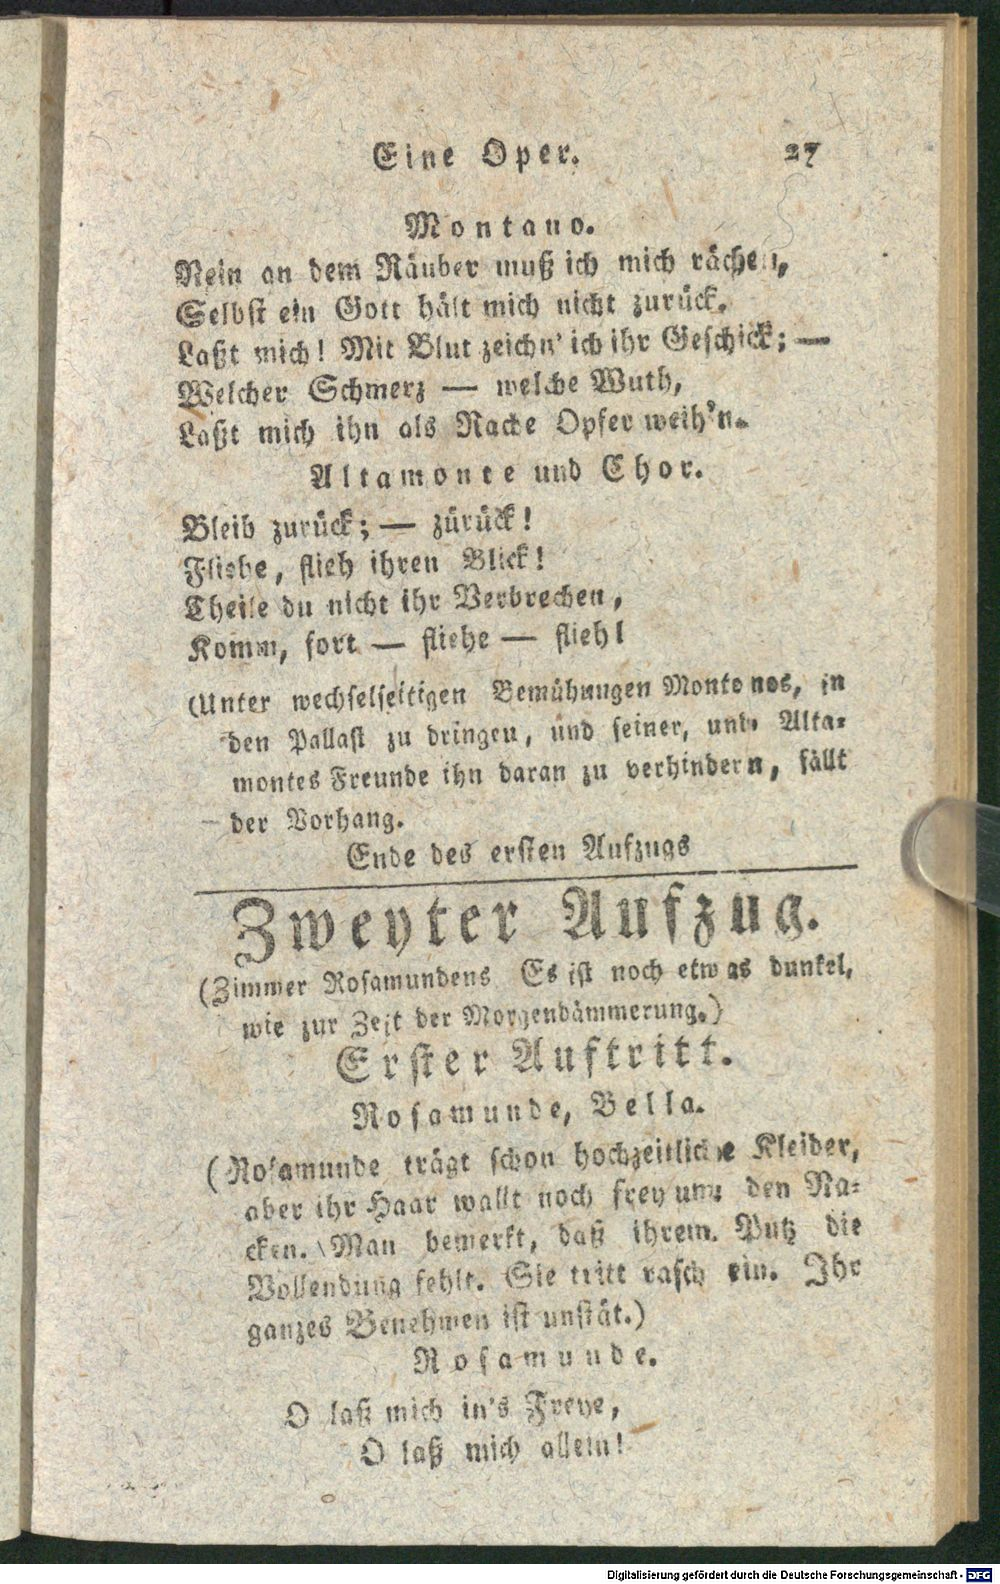 Eine Oper. 27
Montano.
Nein an dem Räuber muß ich mich rächen,
Selbst ein Gott hält mich nicht zurück.
Laßt mich! Mit Blut zeichn' ich ihr Geschick; —
Welcher Schmerz — welche Wuth,
Laßt mich ihn als Rache Opfer weih'n.
Altamonte und Chor.
Bleib zurück; — zürück!
Fliehe, flieh ihren Blick!
Theile du nicht ihr Verbrechen,
Komm, fort — fliehe — flieh!
(Unter wechselseitigen Bemühungen Montanos, in
den Pallast zu dringen, und seiner, und Alta-
montes Freunde ihn daran zu verhindern, fällt
der Vorhang.
Ende des ersten Aufzugs
Zweyter Aufzug.
(Zimmer Rosamundens Es ist noch etwas dunkel,
wie zur Zeit der Morgendämmerung.)
Erster Auftritt.
Rosamunde, Bella.
(Rosamunde trägt schon hochzeitliche Kleider,
aber ihr Haar wallt noch frey um den Na-
cken. Man bemerkt, daß ihrem Putz die
Vollendung fehlt. Sie tritt rasch ein. Ihr
ganzes Benehmen ist unstät.)
Rosamunde.
O laß mich in's Freye,
O laß mich allein!
Digitalisierung gefördert durch die Deutsche Forschungsgemeinschaft - DFG